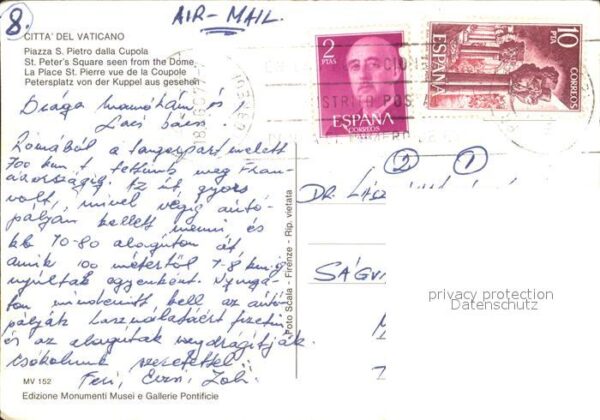 8.
AIR-MAIL.
CITTA' DEL VATICANO
Piazza S. Pietro dalla Cupola
St. Peter's Square seen from the Dome
La Place St. Pierre vue de la Coupole
Petersplatz von der Kuppel aus gesehen
Drága Mamókám és
Laci bácsi
Rómából a tengerpart mellett
700 km-t tettünk meg Fran-
ciaországig. Ez út gyors
volt, mivel végig autó-
pályán kellett menni és
kb 70-80 alagúton át
amik 100 métertől 7-8 km-ig
nyúltak egyenként. Nyuga-
ton mindenütt kell az autó
pályák használatáért fizetni
és az alagutak megdrágítják.
Csókolunk szeretettel:
Feri, Erzsi, Zoli.
MV 152
Edizione Monumenti Musei e Gallerie Pontificie
Foto Scala - Firenze - Rip. vietata
2
PTAS
ESPAÑA
CORREOS
10
PTA
ESPAÑA
CORREOS
DISTRITO POS
2 1
DR. LÁSZ
SÁGV
privacy protection
Datenschutz